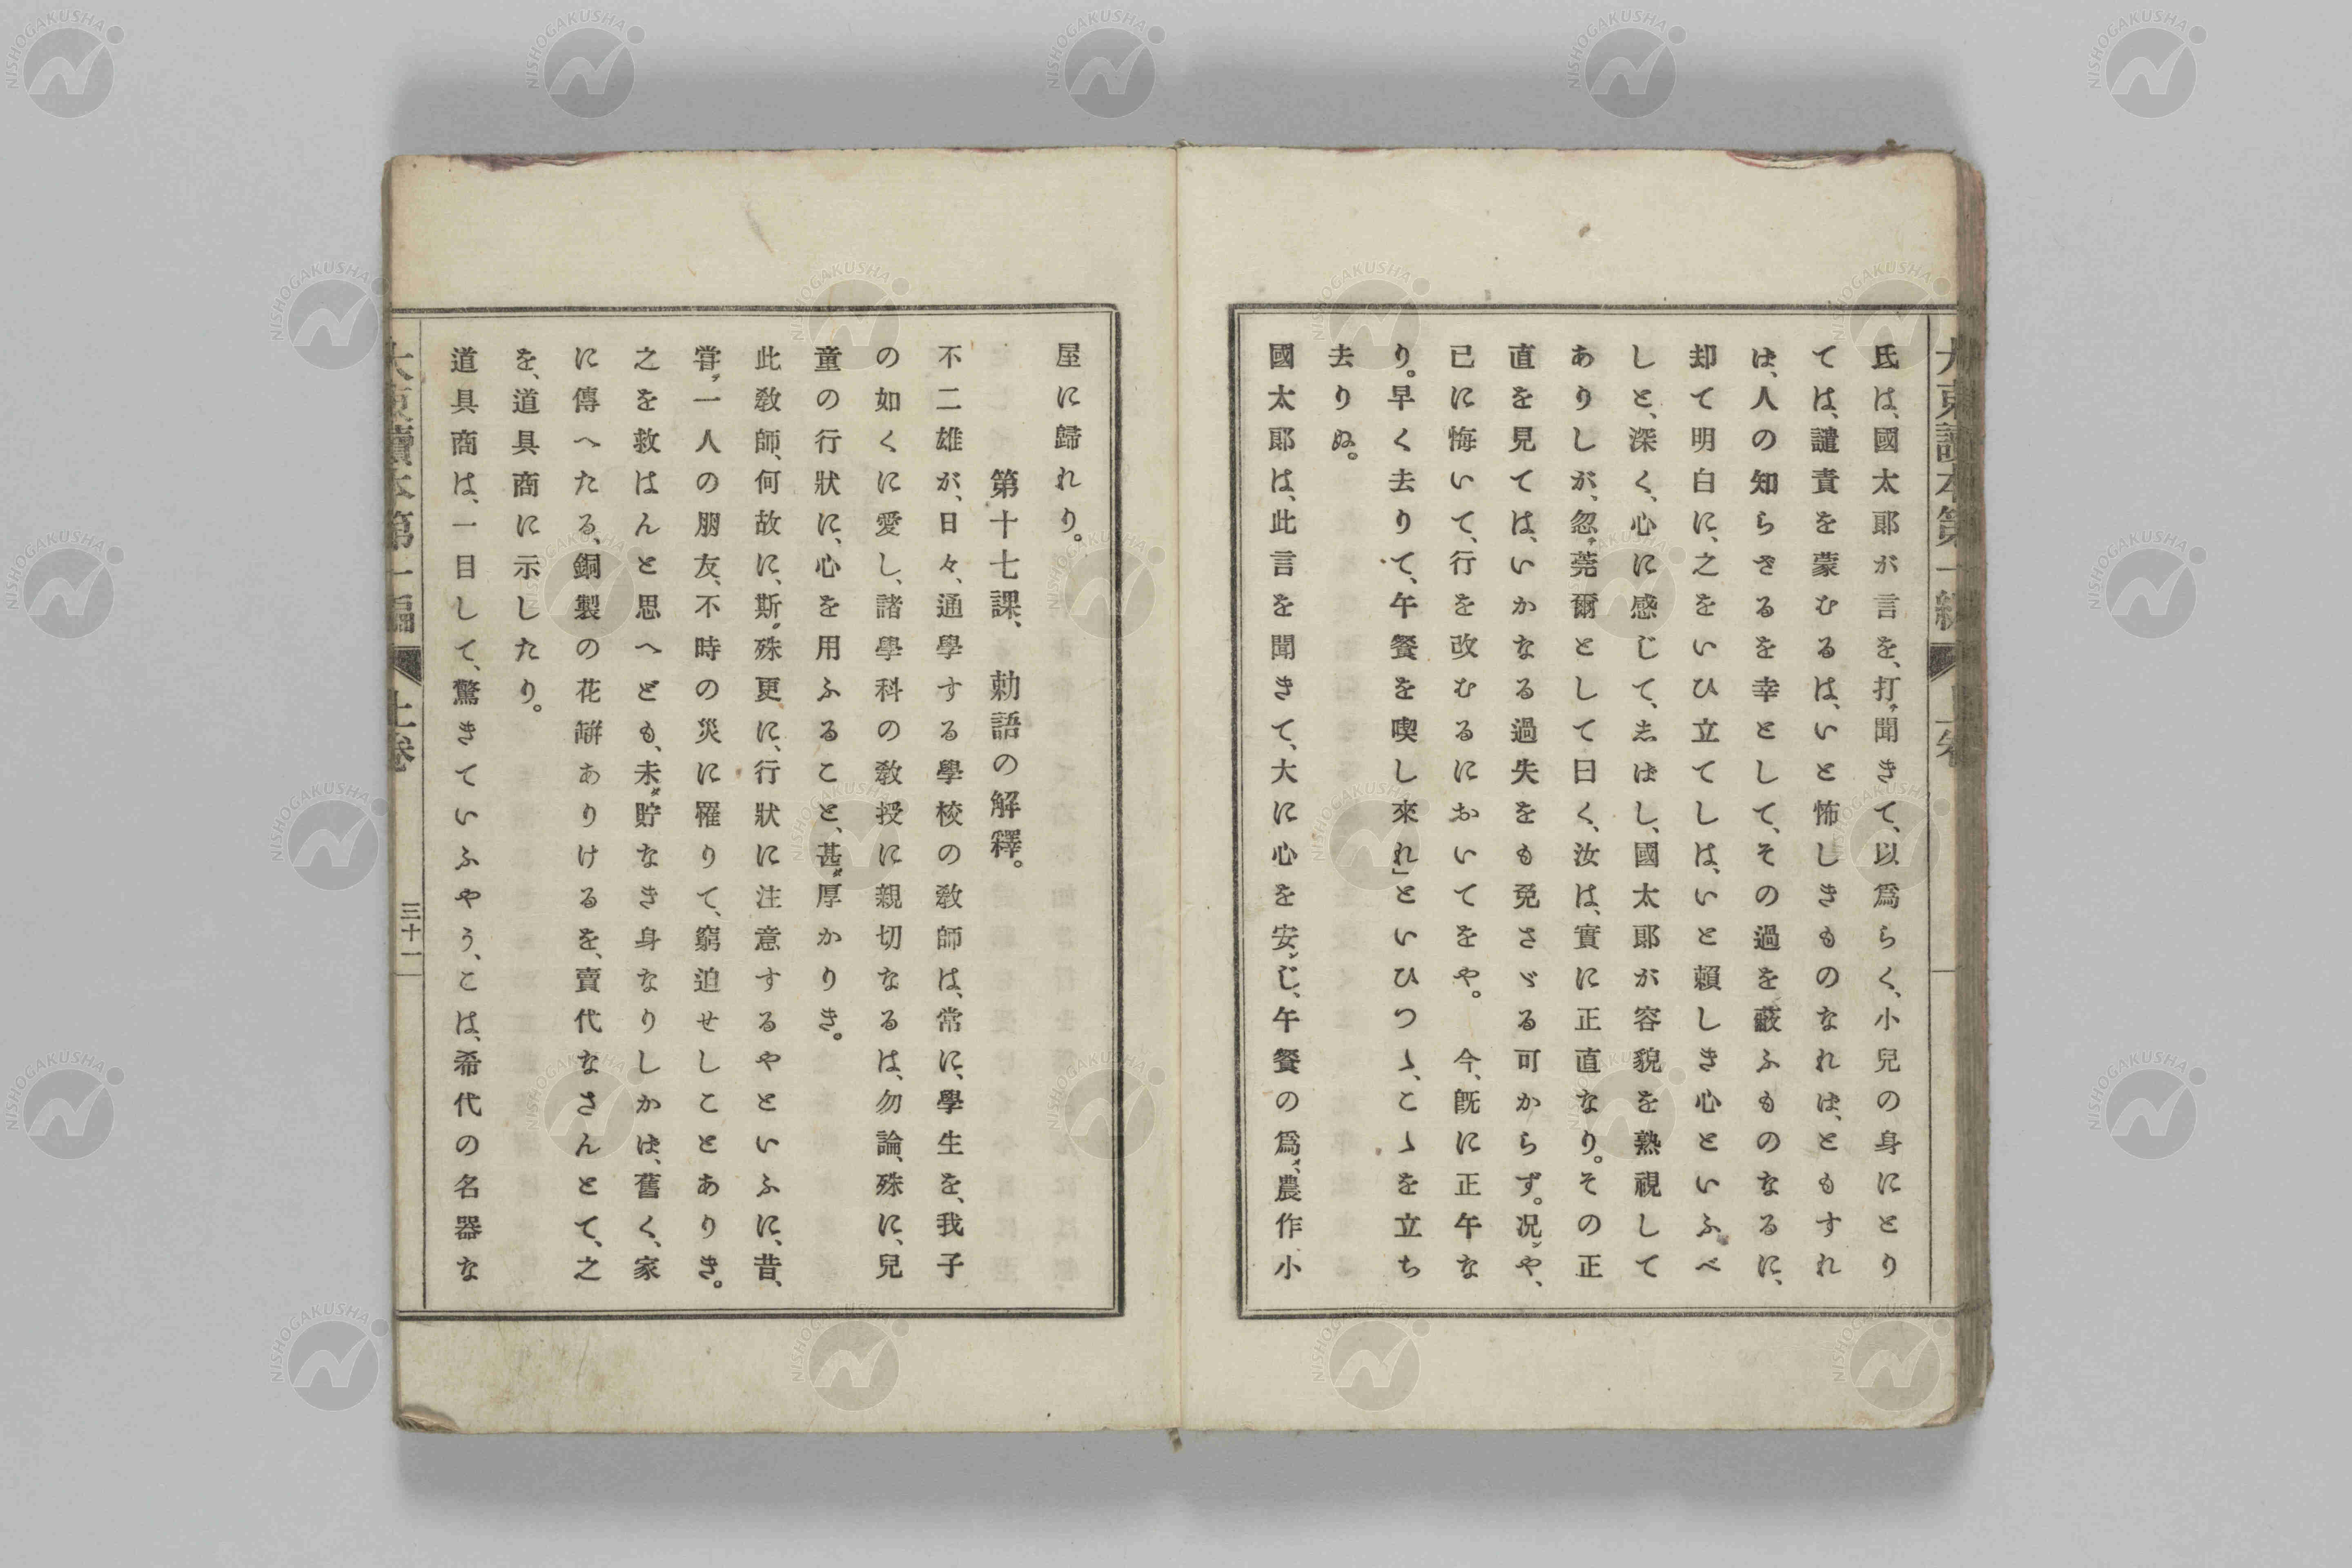 氏は、國太郞が言を、打ヶ聞きて、以爲らく、小兒の身にとり
ては、譴責を蒙むるは、いと怖しきものなれは、ともすれ
は、人の知らざるを幸として、その過を蔽ふものなるに、
却て明白に、之をいひ立てしは、いと賴しき心といふべ
しと、深く、心に感じて、志はし、國太郞が容貌を熟視して
ありしが、忽ヶ莞爾として曰く、汝は、實に正直なり。その正
直を見ては、いかなる過失をも免さゞる可からず。况ンや、
已に悔いて、行を改むるにおいてをや。今、旣に正午な
り。早く去りて、午餐を喫し來れ」といひつゝ、こゝを立ち
去りぬ。
國太郞は、此言を聞きて、大に心を安ンじ、午餐の爲メ、農作小
屋に歸れり。
第十七課、勅語の解釋。
不二雄が、日々、通學する學校の敎師は、常に、學生を、我子
の如くに愛し、諸學科の敎授に親切なるは、勿論、殊に、兒
童の行狀に、心を用ふること、甚ダ厚かりき。
此敎師、何故に、斯ク殊更に、行狀に注意するやといふに、昔、
甞テ一人の朋友、不時の災に罹りて、窮迫せしことありき。
之を救はんと思へども、未ダ貯なき身なりしかは、舊く、家
に傳へたる、銅製の花缾ありけるを、賣代なさんとて、之
を、道具商に示したり。
道具商は、一目して、驚きていふやう、こは、希代の名器な
大東讀本第一編 上卷 三十一
NISHOGAKUSHA